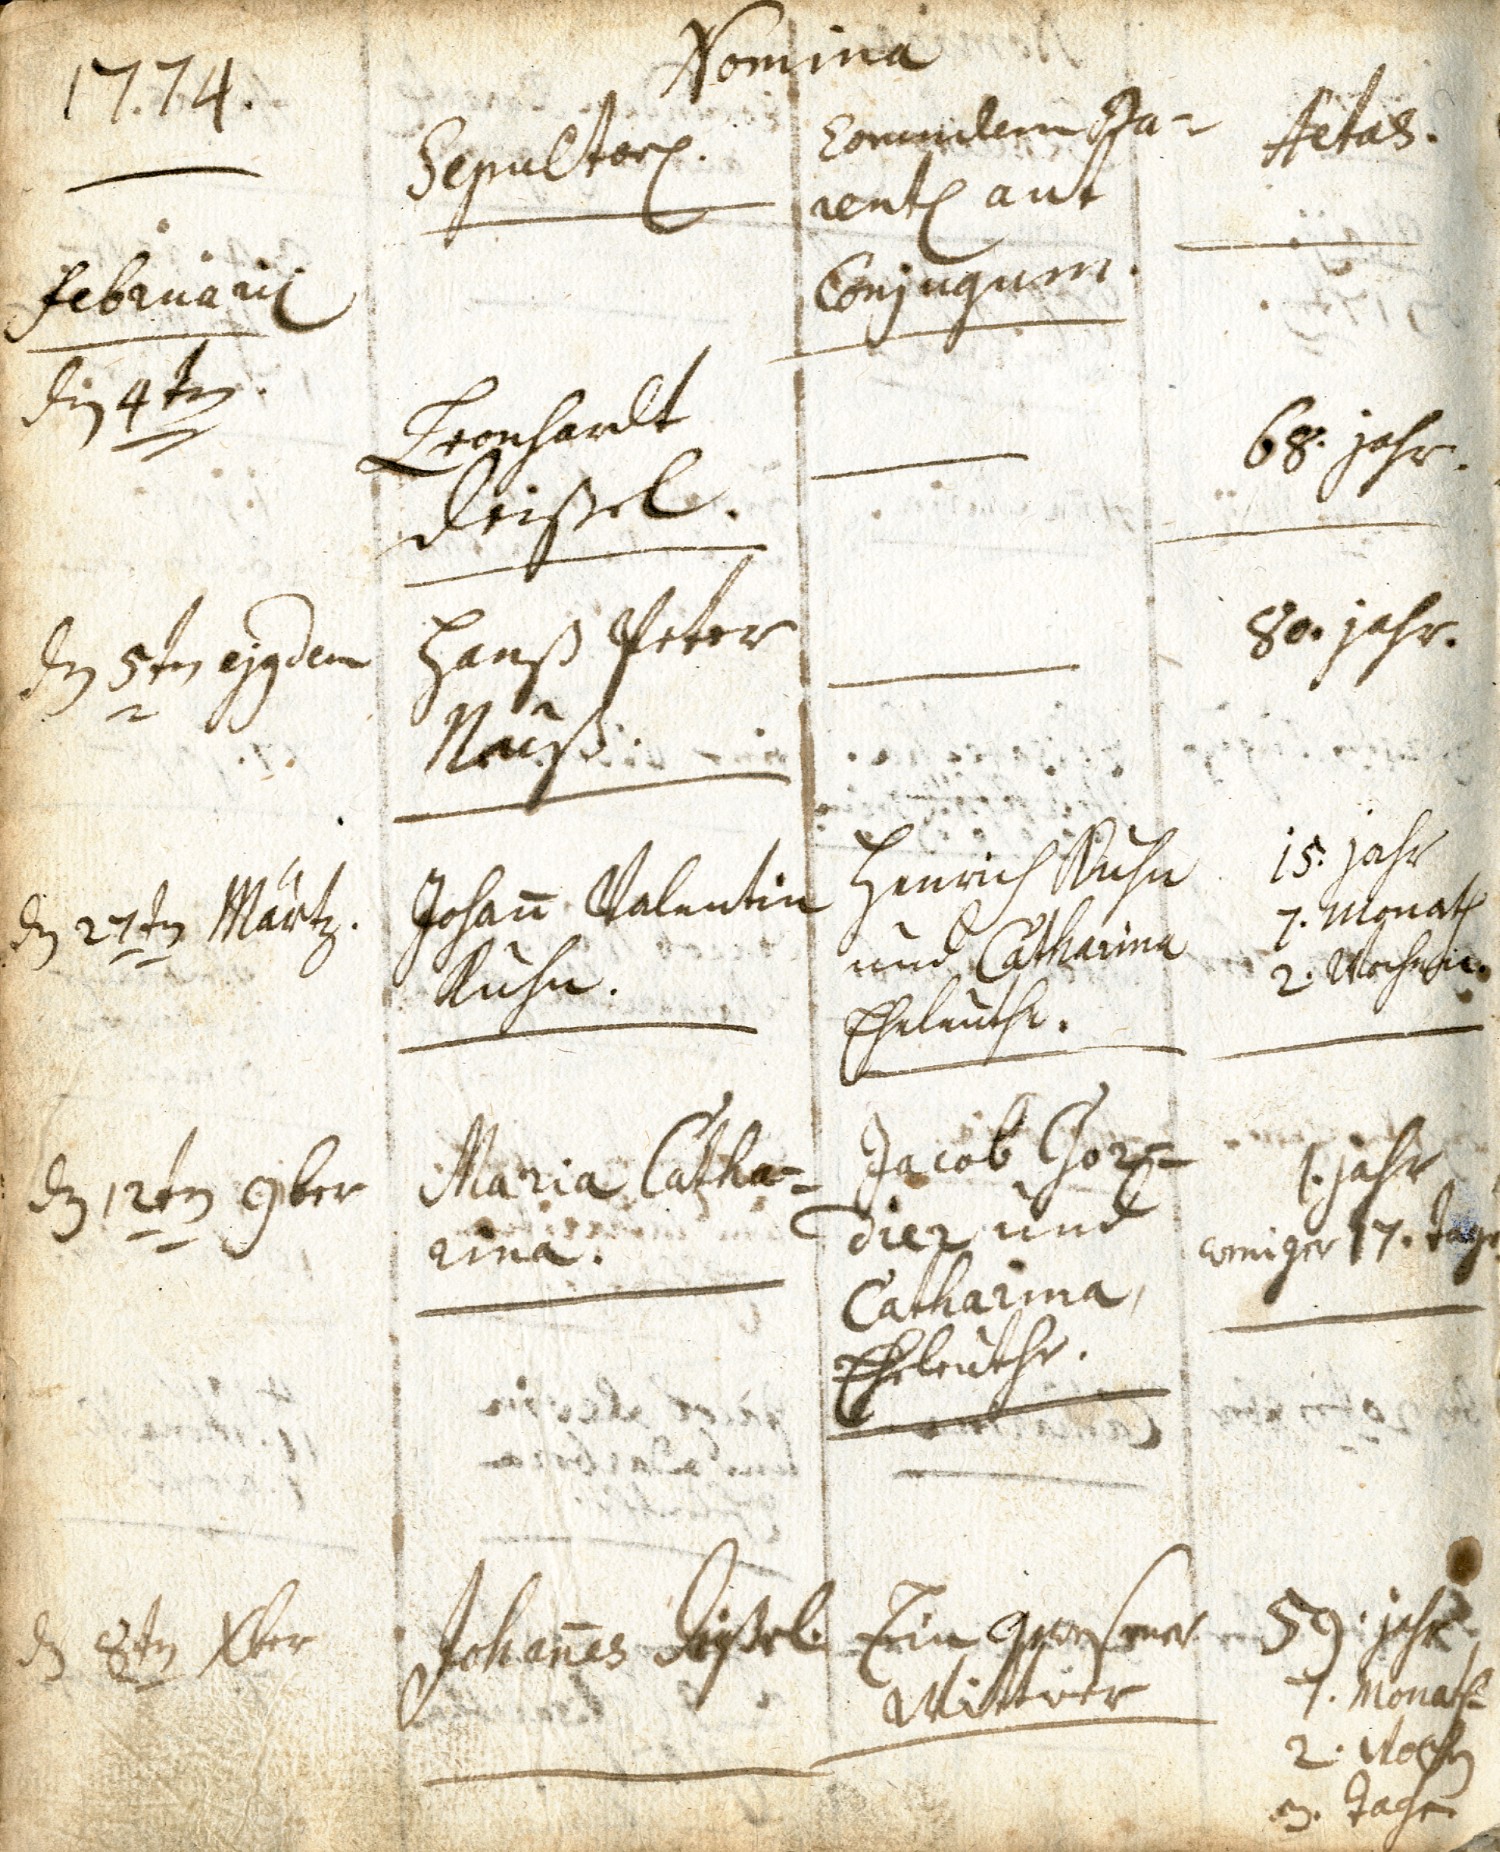 1774.
Nomina
Sepultor.
Eorundem Pa-
rent aut
Conjugum.
Aetas.
Februarii
den 4ten.
Leonhardt
Deißel.
68. jahr.
den 5ten ejusdem
Hanß Peter
Neuß.
80. jahr.
den 27ten Märtz.
Johann Valentin
Kuhn.
Henrich Kuhn
und Catharina
Eheleuthe.
15. jahr
7. Monath
2. Wochen.
den 12ten 9ber
Maria Catha-
rina.
Jacob
und
Catharina,
Eheleuthe.
1. jahr
weniger 17. Tage
den 8ten Xber
Johannes Deißel.
Ein gewesener
Wittwer
59. jahr
7. Monath
2. Wochen
3. Tage